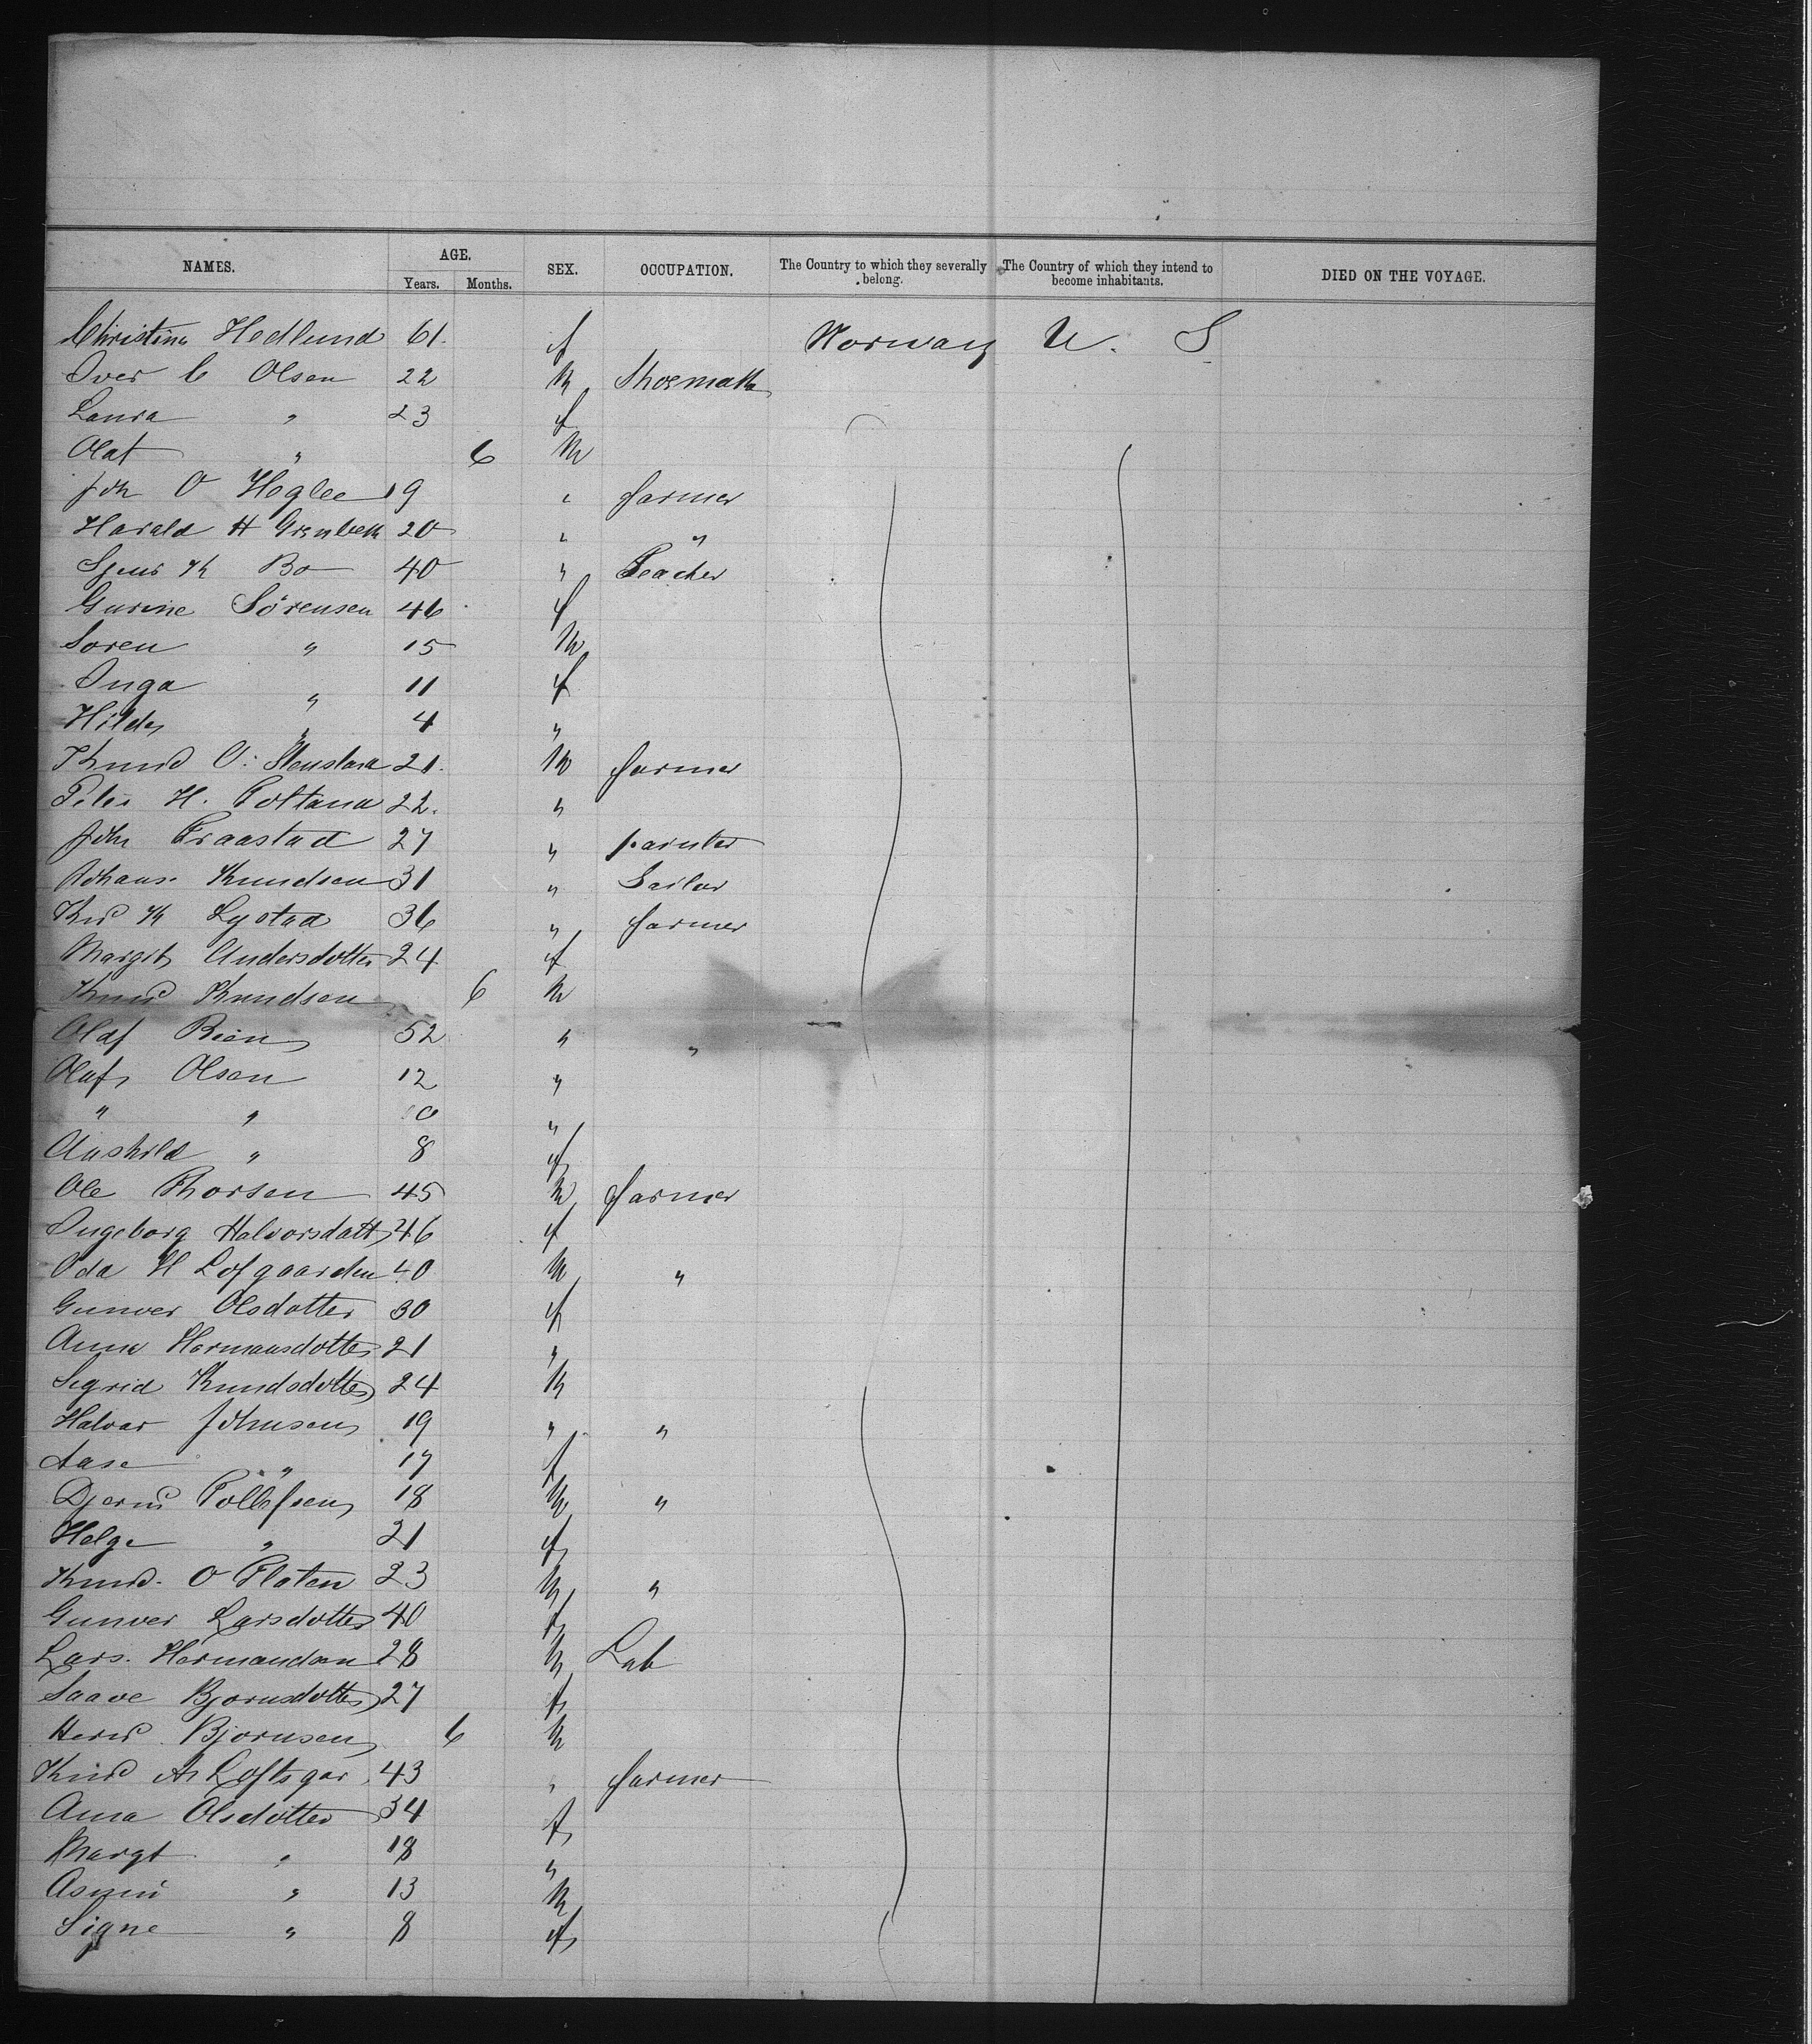 NAMES. AGE. SEX. OCCUPATION. The Country to which they severally belong. The Country of which they intend to become inhabitants. DIED ON THE VOYAGE.
Years. Months.
Christina Hedlund 61. f Norway U. S
Iver C Olsen 22 M
Laura " 23 f
Olaf " 6 M
Joh O Hoglee 19 " farmer
Harald H 20 " "
K Bo 40 " Teacher
Gurine Sörensen 46 f
Soren " 15 M
Inga " 11 f
Hilda " 4 "
Knud O. 21. M farmer
Peter H. 22. "
John Traastad 27 " painter
Johans. Knudsen 31 " Sailor
K Lystad 36 " farmer
Margit Andersdotter 24 f
Knud Knudsen 6 M
Olaf Bien 52 " "
Olaf Olsen 12 "
" " 10 "
Aashild " 8 f
Ole Thorsen 45 M farmer
Ingeborg Halvorsdatt 46 f
Oda H Lofgaarden 40 M "
Gunver Olsdotter 30 f
Anna Hermansdotter 21 "
Sigrid Knudsdotter 24 M
Halvar Johnsen 19 " "
Aase " 17 f
Tollefsen 18 M "
Helge " 21 f
Knud. O Flaten 23 M "
Gunver Larsdotter 40 f
Lars. Hermandsen 28 M Lab
Saave Bjornsdotter 27 f
Bjornsen 6 M
Knud A Loftsgar 43 " farmer
Anna Olsdotter 34 f
Margt " 18 "
" 13 M
Signe " 8 f